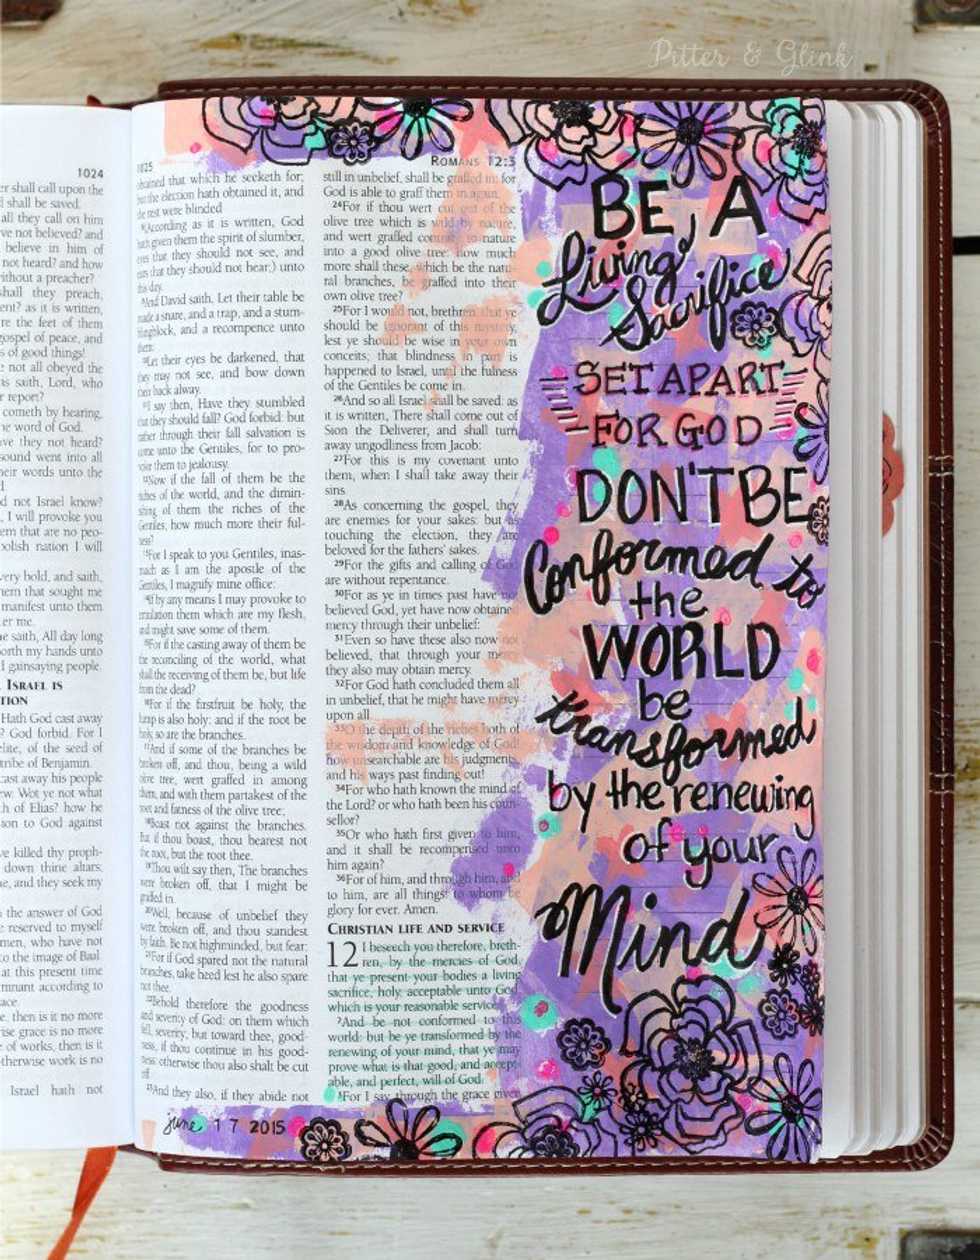 Pitter & Glink
1024
er shall call upon the
l shall be saved.
all they call on him
ve not believed? and
believe in him of
not heard? and how
without a preacher?
shall they preach,
ent? as it is written,
re the feet of them
gospel of peace, and
s of good things!
e not all obeyed the
as saith, Lord, who
r report?
cometh by hearing,
he word of God.
ve they not heard?
sound went into all
heir words unto the
d not Israel know?
, I will provoke you
em that are no peo-
oolish nation I will
very bold, and saith,
hem that sought me
manifest unto them
er me.
he saith, All day long
orth my hands unto
l gainsaying people.
ISRAEL IS
TION
Hath God cast away
? God forbid. For I
elite, of the seed of
tribe of Benjamin.
cast away his people
ew. Wot ye not what
th of Elias? how he
sion to God against
ve killed thy proph-
down thine altars;
e, and they seek my
the answer of God
e reserved to myself
men, who have not
to the image of Baal.
at this present time
mnant according to
ace.
e, then is it no more
rise grace is no more
of works, then is it
otherwise work is no
Israel hath not
1025
obtained that which he seeketh for;
but the election hath obtained it, and
the rest were blinded
According as it is written, God
hath given them the spirit of slumber,
eyes that they should not see, and
ears that they should not hear;) unto
this day.
And David saith, Let their table be
made a snare, and a trap, and a stum-
blingblock, and a recompence unto
them:
Let their eyes be darkened, that
they may not see, and bow down
their back alway.
I say then, Have they stumbled
that they should fall? God forbid: but
rather through their fall salvation is
come unto the Gentiles, for to pro-
voke them to jealousy.
Now if the fall of them be the
riches of the world, and the dimin-
ishing of them the riches of the
Gentiles; how much more their ful-
ness?
For I speak to you Gentiles, inas-
much as I am the apostle of the
Gentiles, I magnify mine office:
If by any means I may provoke to
emulation them which are my flesh,
and might save some of them.
For if the casting away of them be
the reconciling of the world, what
shall the receiving of them be, but life
from the dead?
For if the firstfruit be holy, the
lump is also holy: and if the root be
holy, so are the branches.
And if some of the branches be
broken off, and thou, being a wild
olive tree, wert graffed in among
them, and with them partakest of the
root and fatness of the olive tree;
Boast not against the branches.
But if thou boast, thou bearest not
the root, but the root thee.
Thou wilt say then, The branches
were broken off, that I might be
graffed in.
Well; because of unbelief they
were broken off, and thou standest
by faith. Be not highminded, but fear:
For if God spared not the natural
branches, take heed lest he also spare
not thee.
22Behold therefore the goodness
and severity of God: on them which
fell, severity; but toward thee, good-
ness, if thou continue in his good-
ness: otherwise thou also shalt be cut
off.
23And they also, if they abide not
ROMANS 12:3
still in unbelief, shall be graffed in: for
God is able to graff them in again.
24For if thou wert cut out of the
olive tree which is wild by nature,
and wert graffed contrary to nature
into a good olive tree: how much
more shall these, which be the natu-
ral branches, be graffed into their
own olive tree?
25For I would not, brethren, that ye
should be ignorant of this mystery,
lest ye should be wise in your own
conceits; that blindness in part is
happened to Israel, until the fulness
of the Gentiles be come in.
26And so all Israel shall be saved: as
it is written, There shall come out of
Sion the Deliverer, and shall turn
away ungodliness from Jacob:
27For this is my covenant unto
them, when I shall take away their
sins.
28As concerning the gospel, they
are enemies for your sakes: but as
touching the election, they are
beloved for the fathers' sakes.
29For the gifts and calling of God
are without repentance.
30For as ye in times past have not
believed God, yet have now obtained
mercy through their unbelief:
31Even so have these also now not
believed, that through your mercy
they also may obtain mercy.
32For God hath concluded them all
in unbelief, that he might have mercy
upon all.
33O the depth of the riches both of
the wisdom and knowledge of God!
how unsearchable are his judgments,
and his ways past finding out!
34For who hath known the mind of
the Lord? or who hath been his coun-
sellor?
35Or who hath first given to him,
and it shall be recompensed unto
him again?
36For of him, and through him, and
to him, are all things: to whom be
glory for ever. Amen.
CHRISTIAN LIFE AND SERVICE
12 I beseech you therefore, breth-
ren, by the mercies of God,
that ye present your bodies a living
sacrifice, holy, acceptable unto God,
which is your reasonable service.
2And be not conformed to this
world: but be ye transformed by the
renewing of your mind, that ye may
prove what is that good, and accept-
able, and perfect, will of God.
3For I say, through the grace given
june 17 2015
BE A
Living
Sacrifice
SET APART
FOR GOD
DON'T BE
Conformed to
the
WORLD
be
transformed
by the renewing
of your
Mind